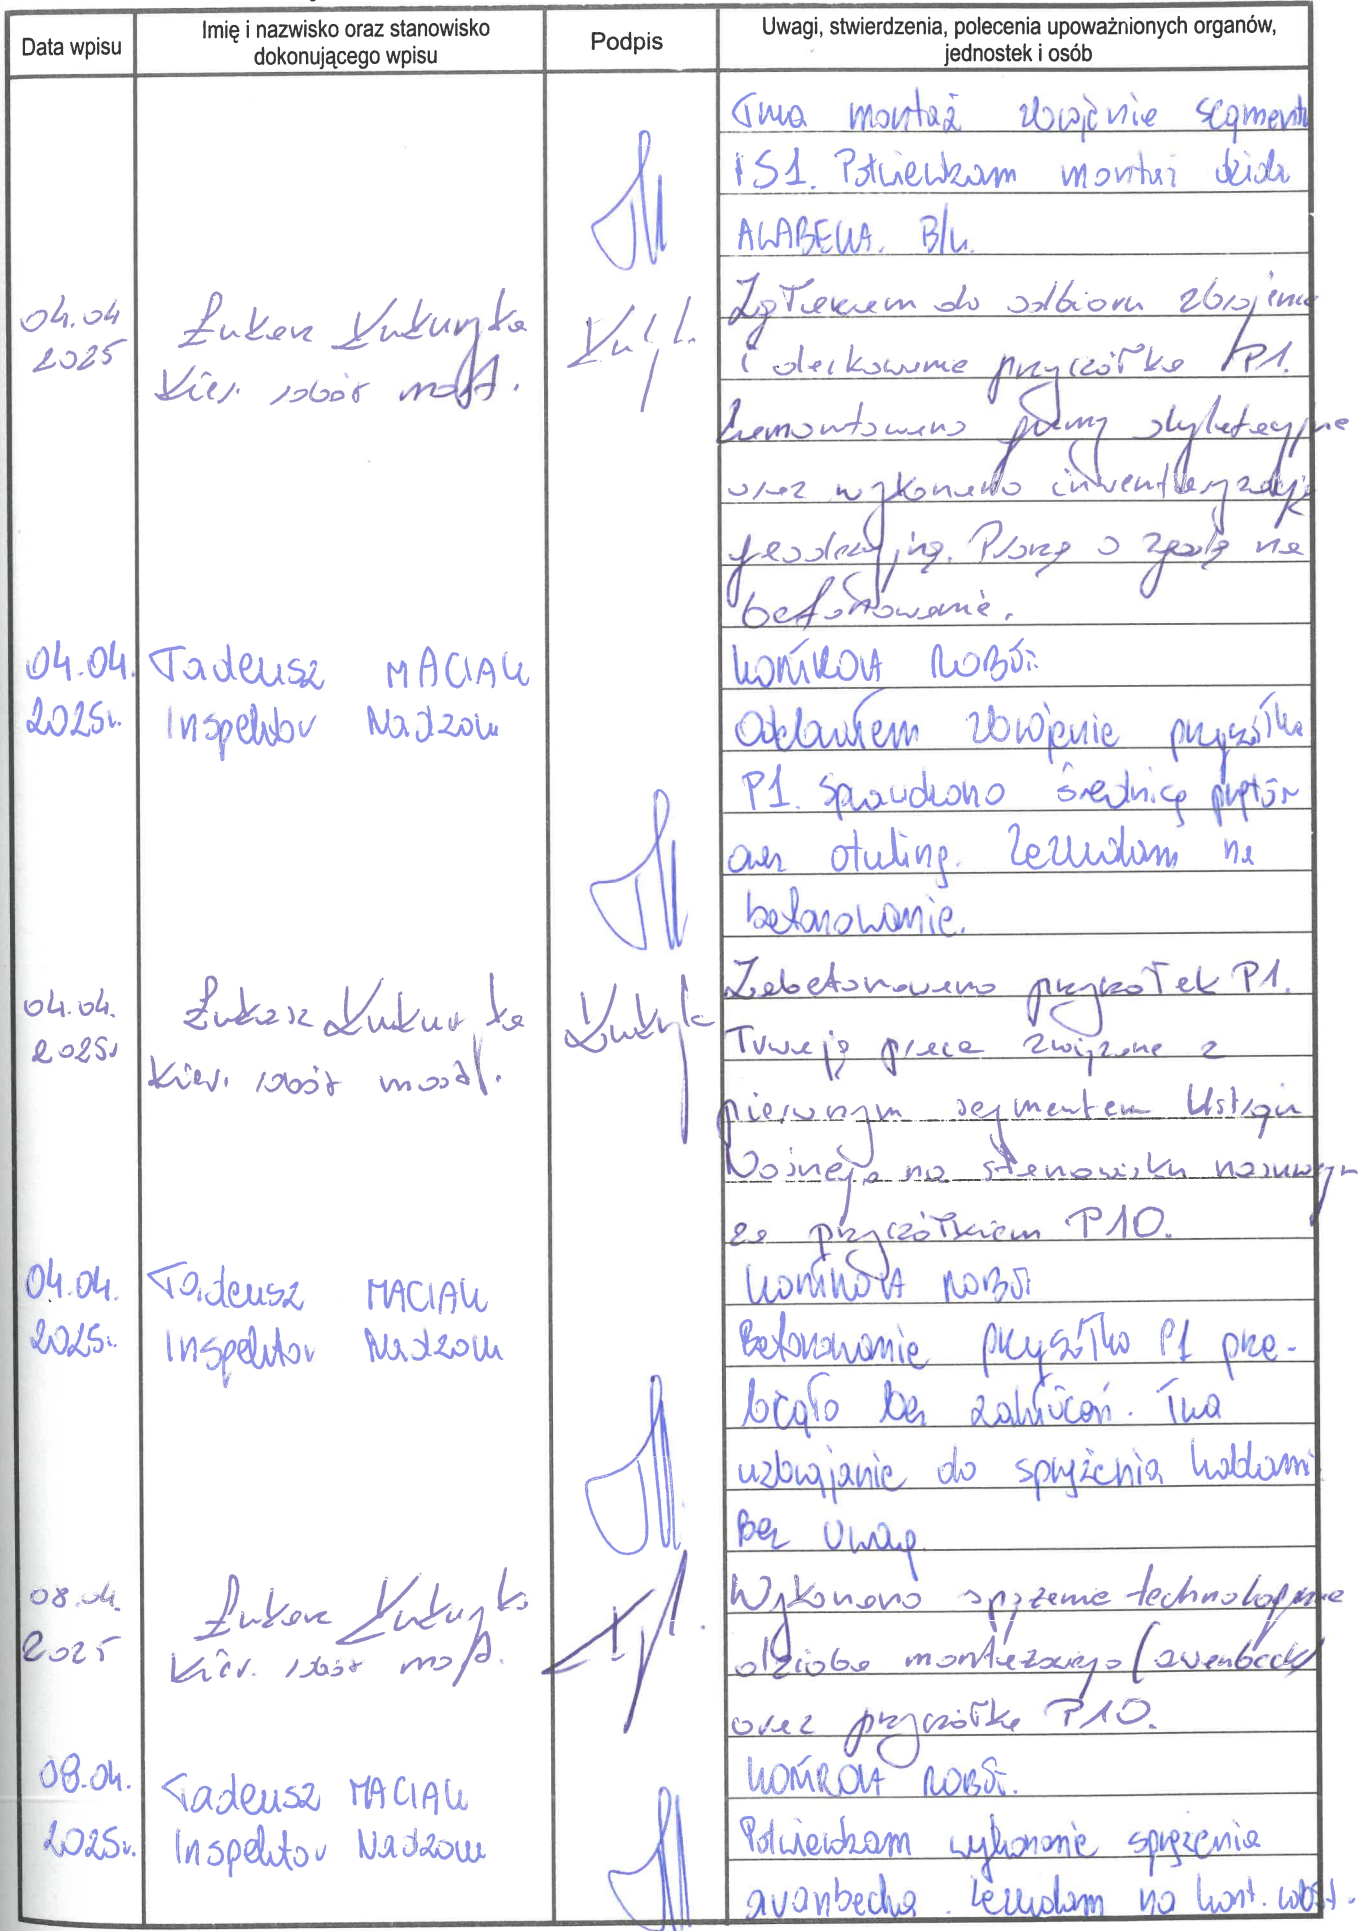 Data wpisu
Imię i nazwisko oraz stanowisko
dokonującego wpisu
Podpis
Uwagi, stwierdzenia, polecenia upoważnionych organów,
jednostek i osób
Trwa montaż zbrojenie segmentu
S1. Potwierdzam montaż dzioba
B/u.
04.04
2025
Łukasz Kukuryka
Kier. robót most.
Zgłaszam do odbioru zbrojenie
i deskowanie przyczółka P1.
Zamontowano dylatacyjne
oraz wykonano inwentaryzację
geodezyjną. Proszę o zgodę na
betonowanie.
04.04.
2025r.
Tadeusz MACIAK
Inspektor Nadzoru
KONTROLA ROBÓT.
Odebrałem zbrojenie przyczółka
P1. Sprawdzono średnicę prętów
oraz otulinę. Zezwalam na
betonowanie.
04.04.
2025r
Łukasz Kukuryka
Kier. robót most.
Zabetonowano przyczółek P1.
Trwają prace związane z
pierwszym segmentem Ustroju
Nośnego na stanowisku nasuwczym
za przyczółkiem P10.
04.04.
2025r.
Tadeusz MACIAK
Inspektor Nadzoru
KONTROLA ROBÓT
Betonowanie przyczółka P1 prze-
biegało bez zakłóceń. Trwa
uzbrajanie do sprężenia kablami.
Bez Uwag
08.04.
2025
Łukasz Kukuryka
Kier. robót most.
Wykonano sprężenie technologiczne
dzioba montażowego (awenbeck)
oraz przyczółka P10.
08.04.
2025r.
Tadeusz MACIAK
Inspektor Nadzoru
KONTROLA ROBÓT.
Potwierdzam wykonanie sprężenia
avanbecka. Zezwalam na kont. robót.